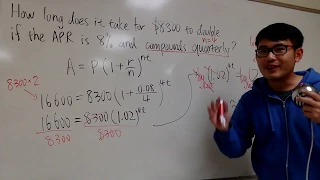 How long does it take for $8300 to double
if the APR is 8% and compounds quarterly?
n=4
A = P(1 + r/n)^nt
8300×2
16600 = 8300(1 + 0.08/4)^4t
16600 = 8300(1.02)^4t
8300 8300
(1.02)^4t